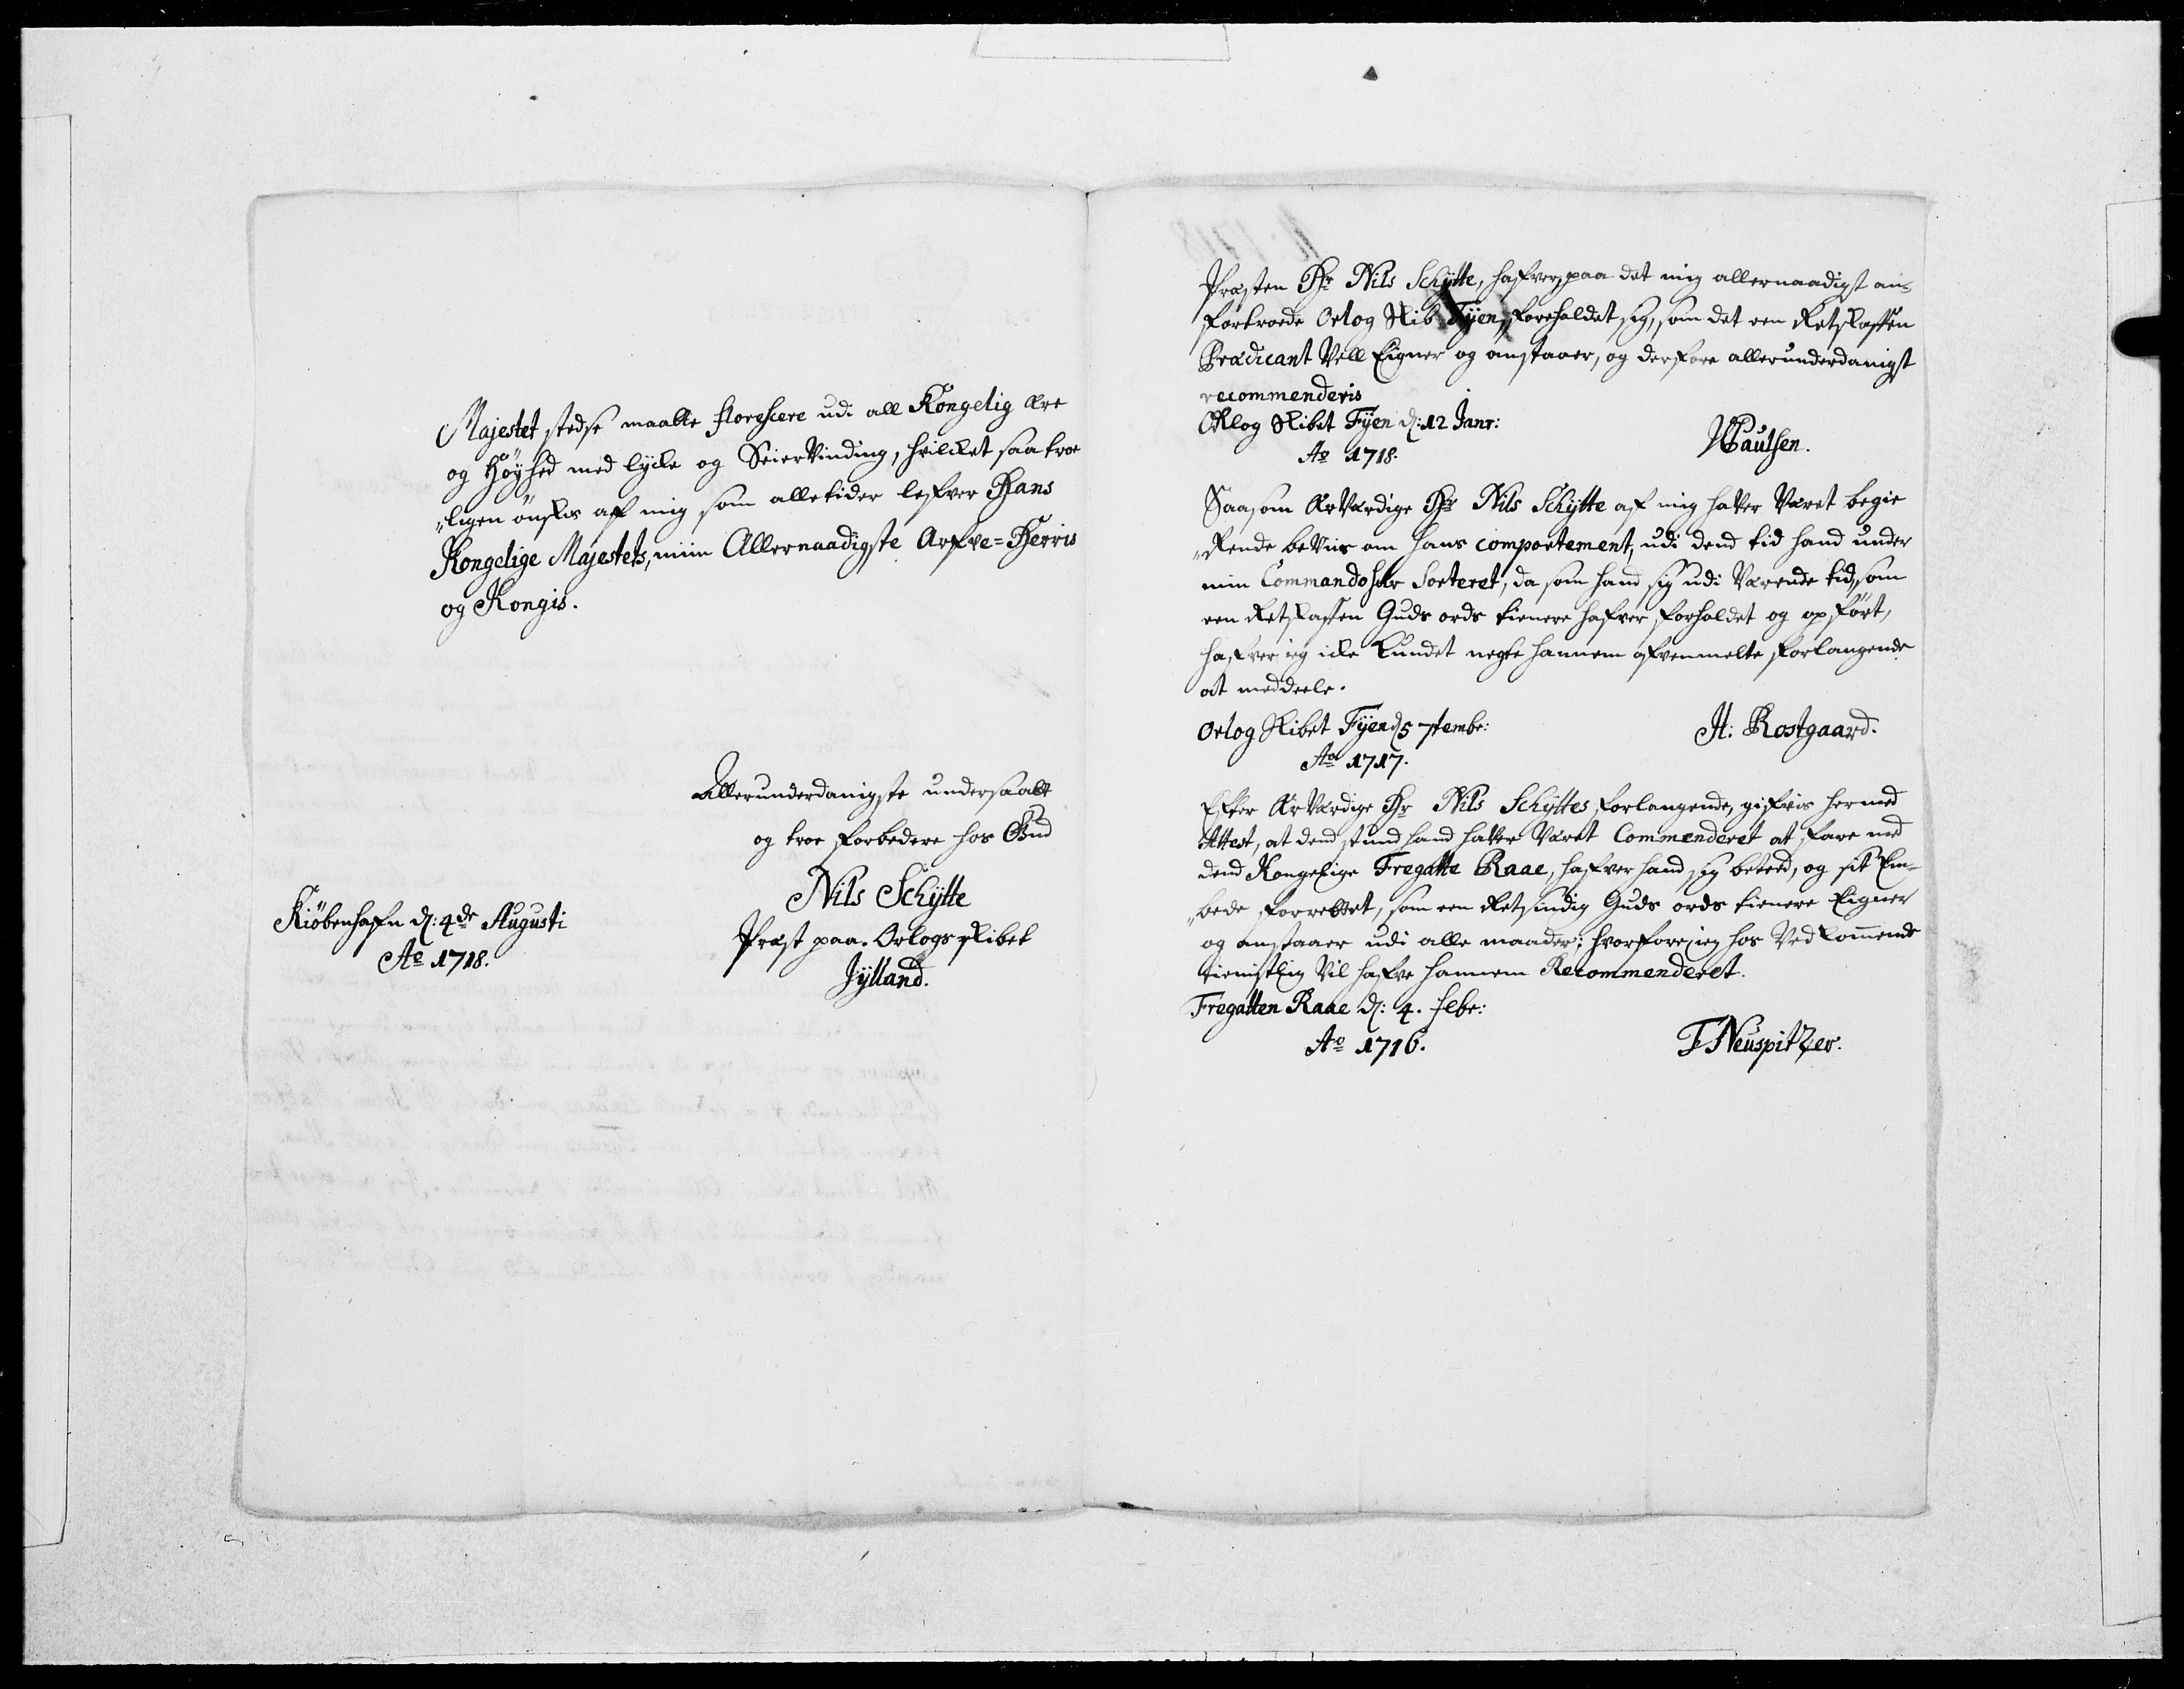 Majestet stedse maatte florescere udi all Kongelig ære
og Höyhed med lycke og SeierVinding, hvilcket saa troe
„ligen önskes aff mig som alletider lefver Hans
Kongelige Majestets, miin Allernaadigste Arfve=Herris
og Kongis.
Allerunderdanigste undersaatt
og troe forbedere hos Gud
Nils Schÿtte
Præst paa Orlogs skibet
Jÿlland.
Kiöbenhafn d: 4de Augusti
Ao 1718.
Præsten Hr Nils Schÿtte, hafver paa det mig allernaadigst an=
fortroede Orlog skib Fÿen, forholdet sig, som det een Retskaffen
Prædicant Vell Eigner og anstaaer, og derfore allerunderdanigst
recommenderis
Orlog skibet Fÿen d: 12 Janr:
Ao 1718.
Paulsen.
Saasom ÆrVærdige Hr Nils Schÿtte af mig hafver Været begie
„rende beViis om hans comportement, udi dend tid hand under
min Commando har Sorteret, da som hand sig udi Værende tid, som
een Retskaffen Guds ords tienere hafver forholdet og opfört,
hafver ieg icke kundet negte hannem ofvenmelte forlangende
at meddeele.
Orlog skibet Fÿen d 5 7tembr:
Ao 1717.
H: Rostgaard.
Efter ÆrVærdige Hr Nils Schÿttes forlangende, gifvis hermed
Attest, at dend stund hand hafver Været Commenderet at fare med
dend Kongelige Fregatte Raae, hafver hand sig beteed, og sit Em=
„bede forrettet, som een Retsindig Guds ords tienere Eigner
og anstaaer udi alle maader; hvorfore ieg hos Vedkommende
tienistlig Vil hafve hannem Recommenderet.
Fregatten Raae d: 4. febr:
Ao 1716.
F Neuspitzer.